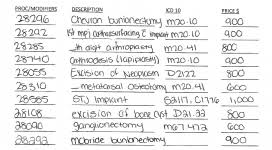 PROC/MODIFIERS DESCRIPTION ICD 10 PRICE $
28296 Chevron bunionectomy m20.10 900
28292 1st mpj arthrosurfacing & implant m20.10 900
28285 th digit arthroplasty m20.41 800
28740 Arthrodesis (lapiplasty) m20.10 900
28055 Excision of neoplasm D21.22 800
28310 metatarsal osteotomy m20.41 600
28585 STJ Implant S2117, C1776 1,000
28108 excision of bone cyst D21.22 800
28090 ganglionectomy m67.472 600
28292 mcbride bunionectomy 900